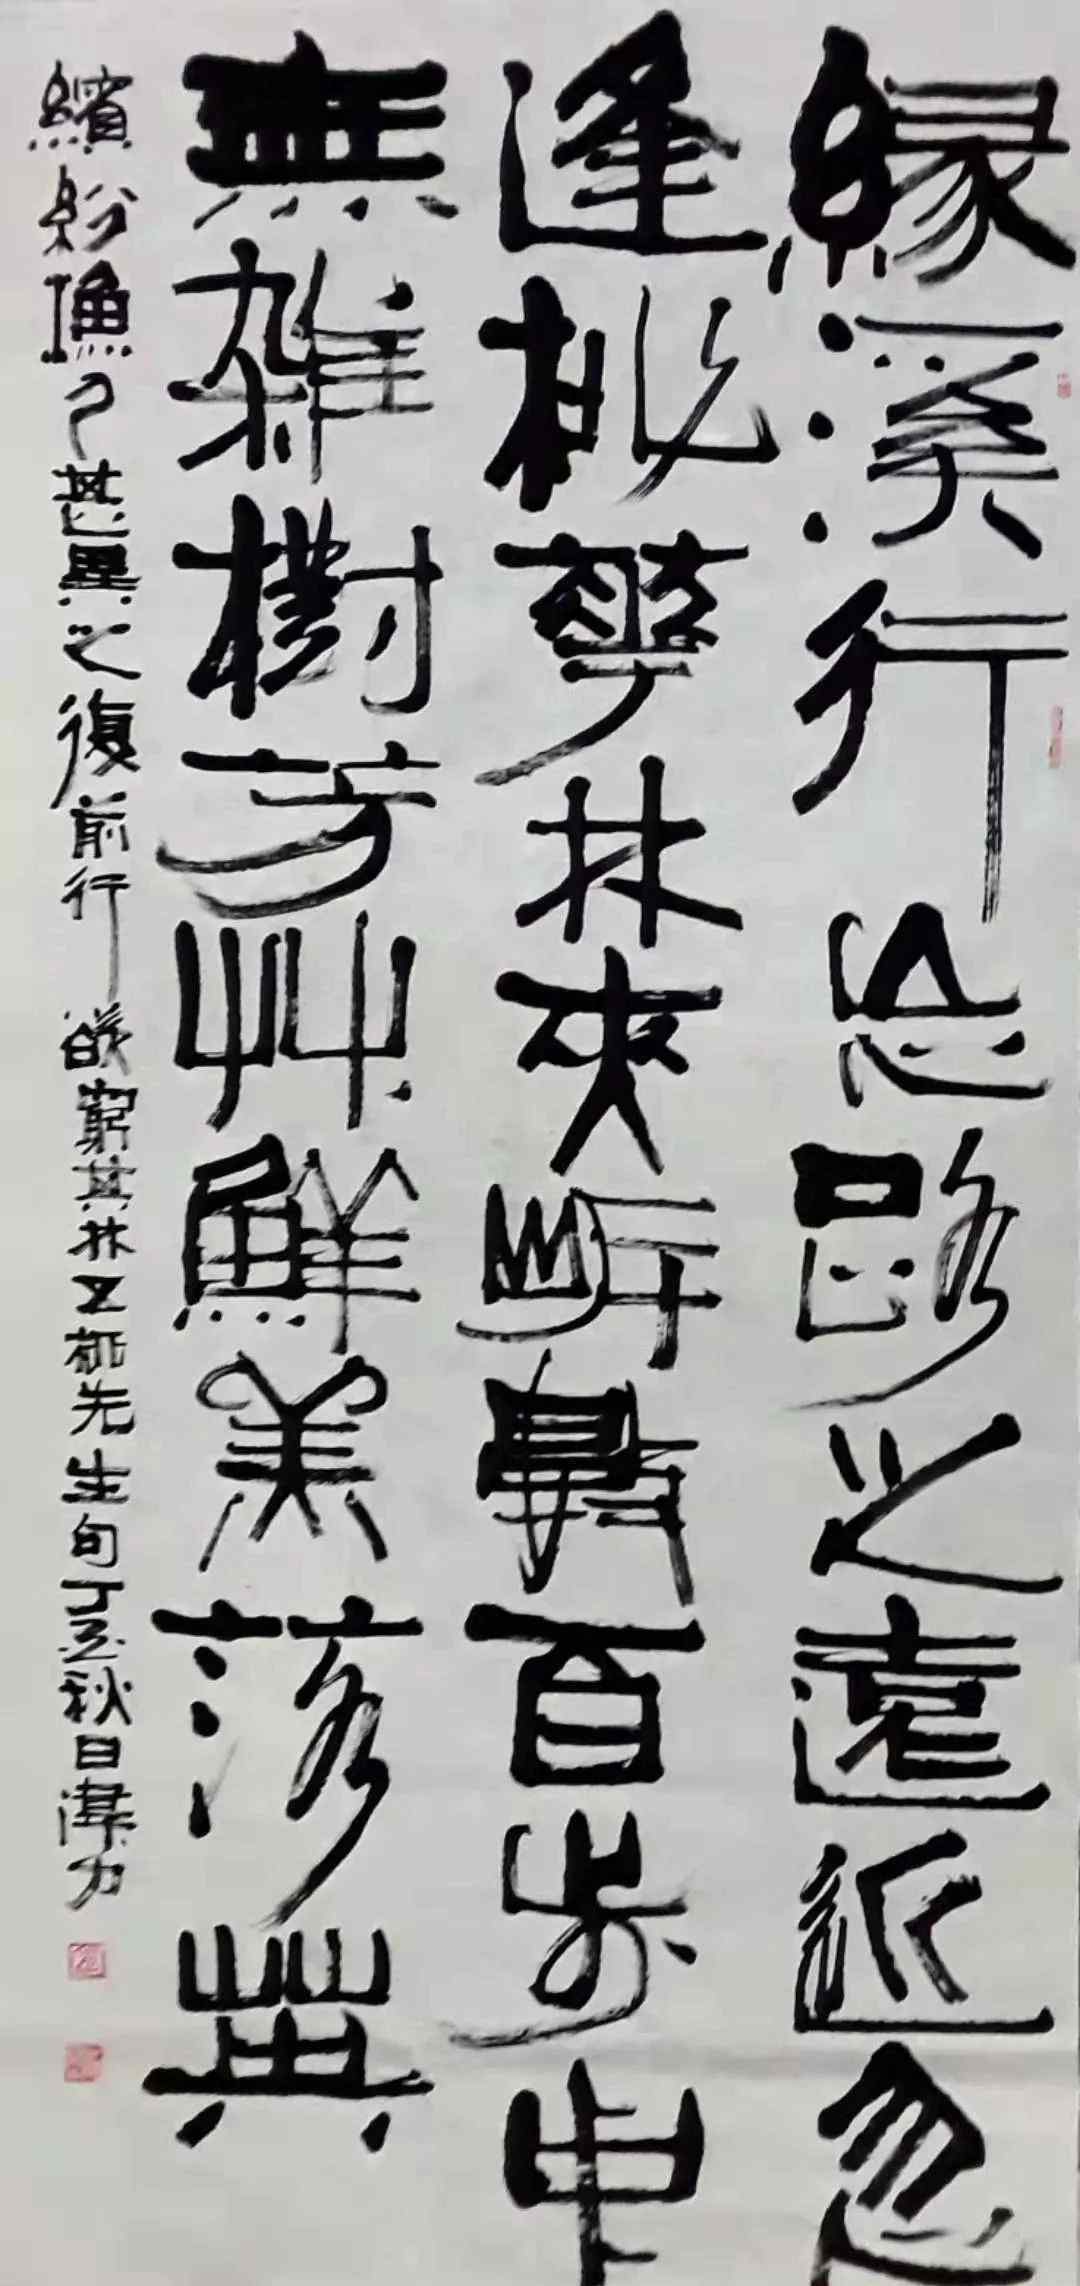 緣溪行忘路之遠近忽
逢桃華林夾岸數百步中
無雜樹芳艸鮮美落英
繽紛漁人甚異之復前行欲窮其林五柳先生句丁亥秋日漢力